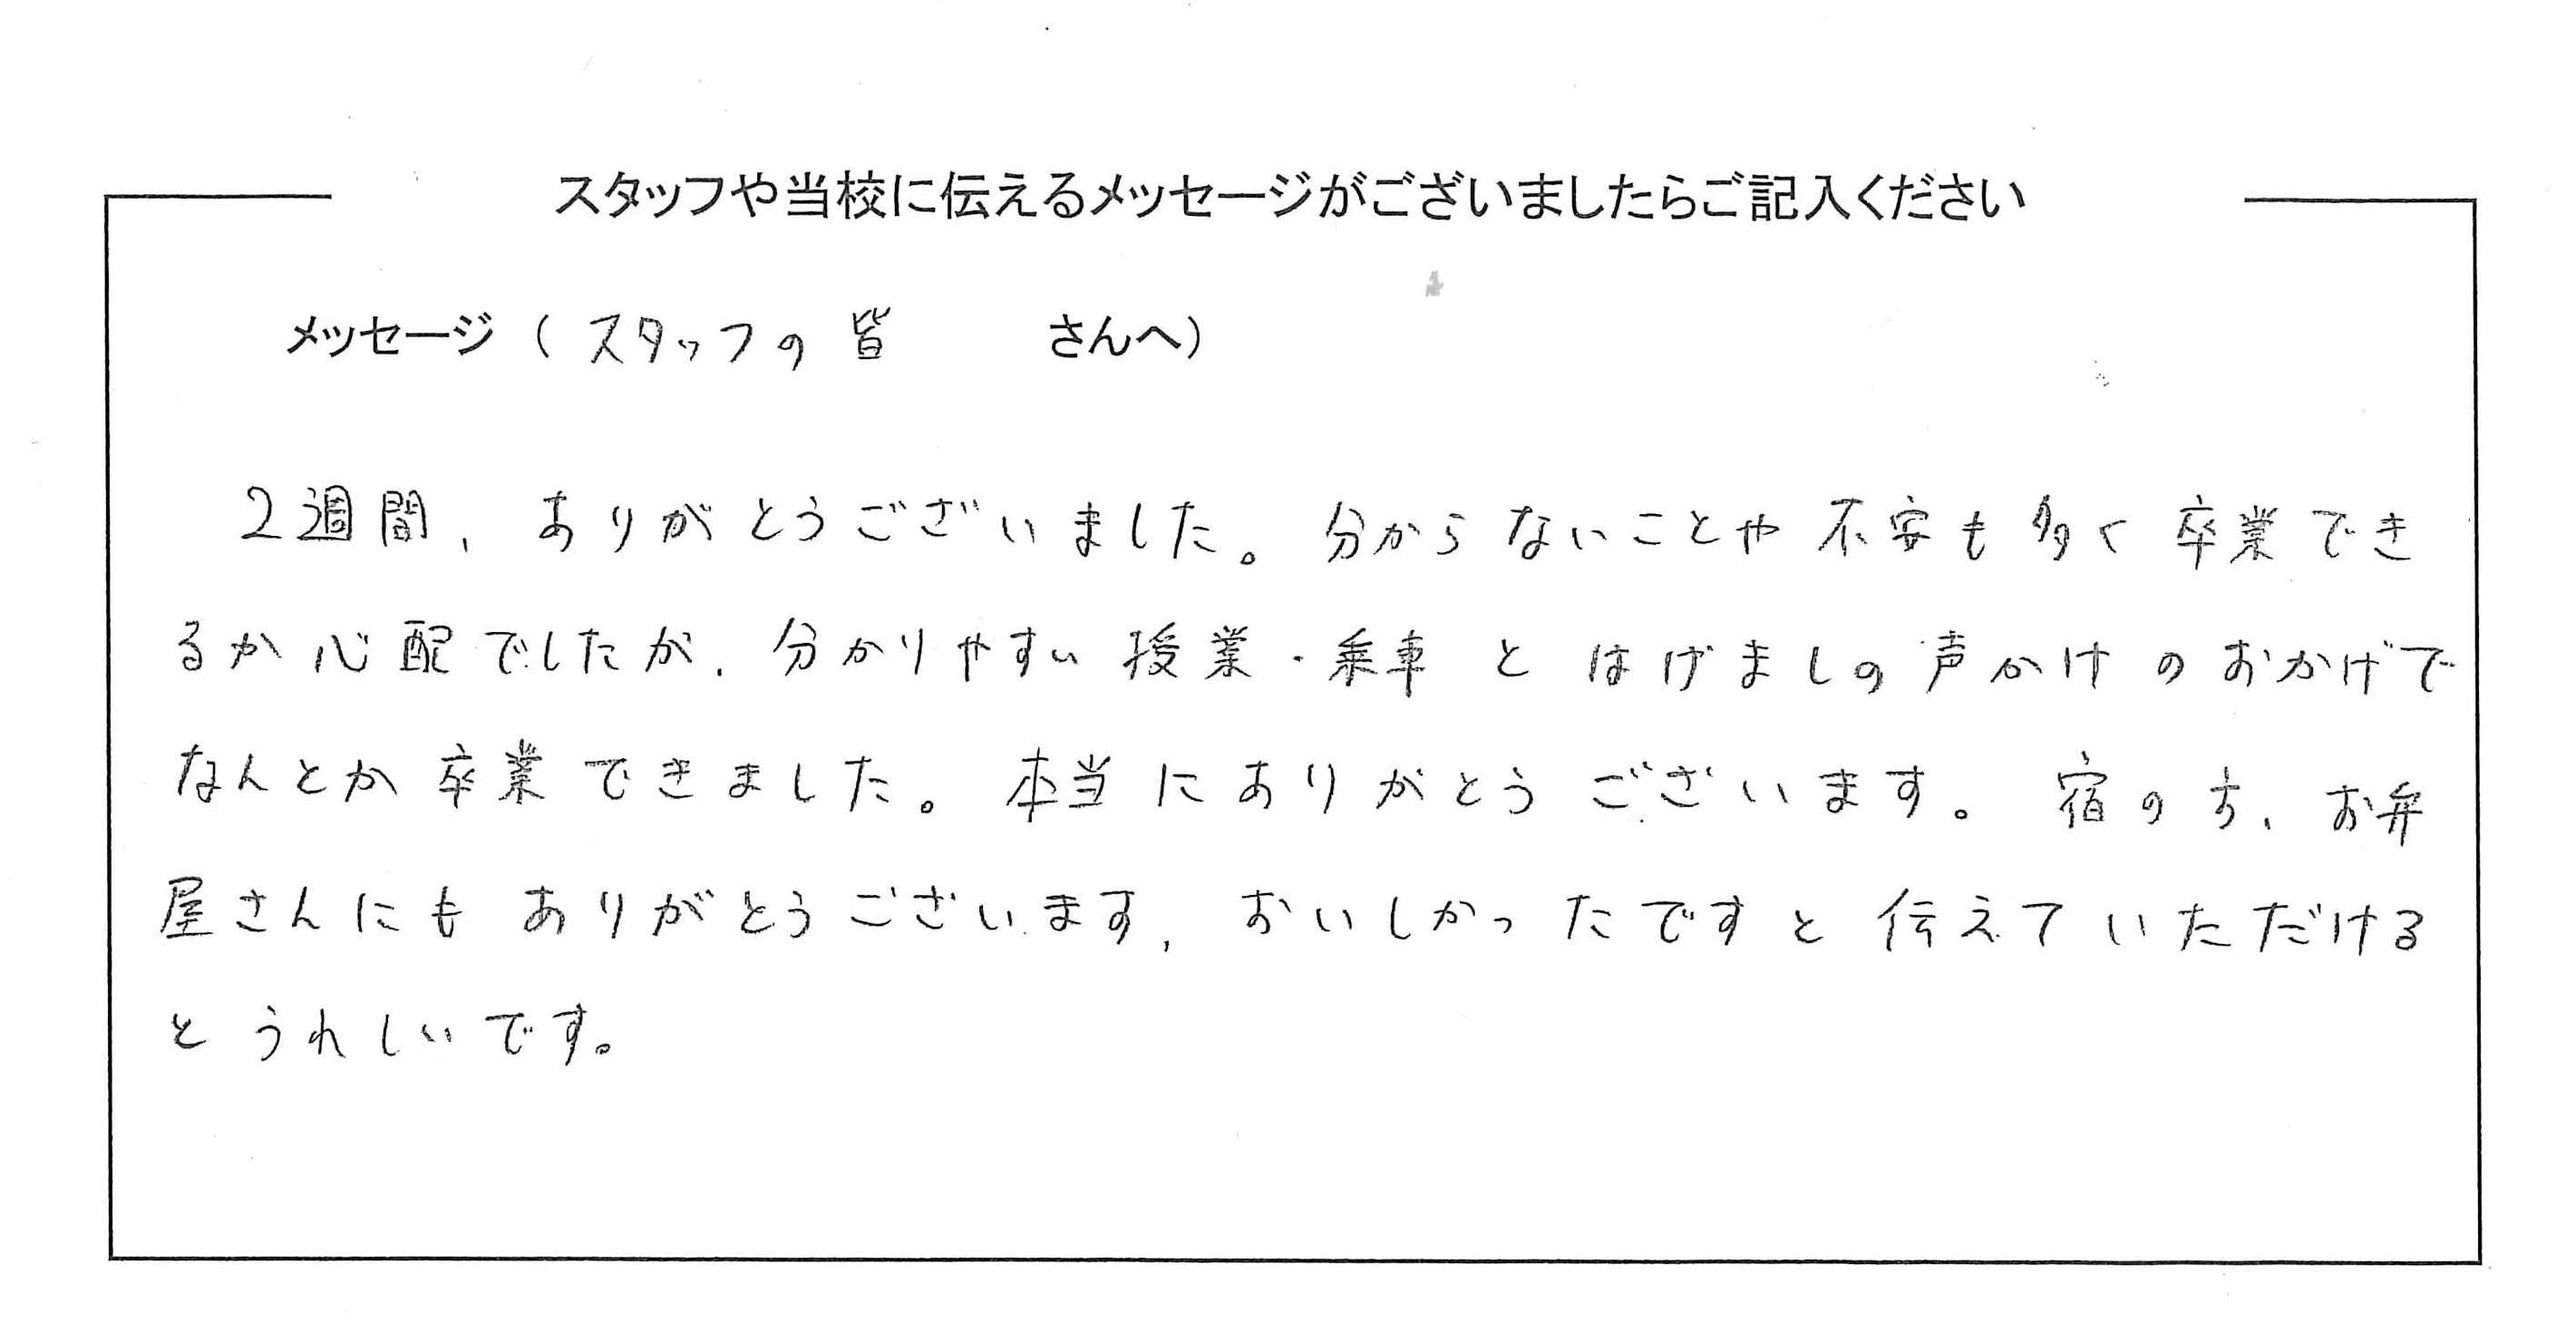 スタッフや当校に伝えるメッセージがございましたらご記入ください
メッセージ（スタッフの皆 さんへ）
2週間、ありがとうございました。分からないことや不安も多く卒業でき
るか心配でしたが、分かりやすい授業・乗車とはげましの声かけのおかげで
なんとか卒業できました。本当にありがとうございます。宿の方、お弁
屋さんにもありがとうございます、おいしかったですと伝えていただける
とうれしいです。